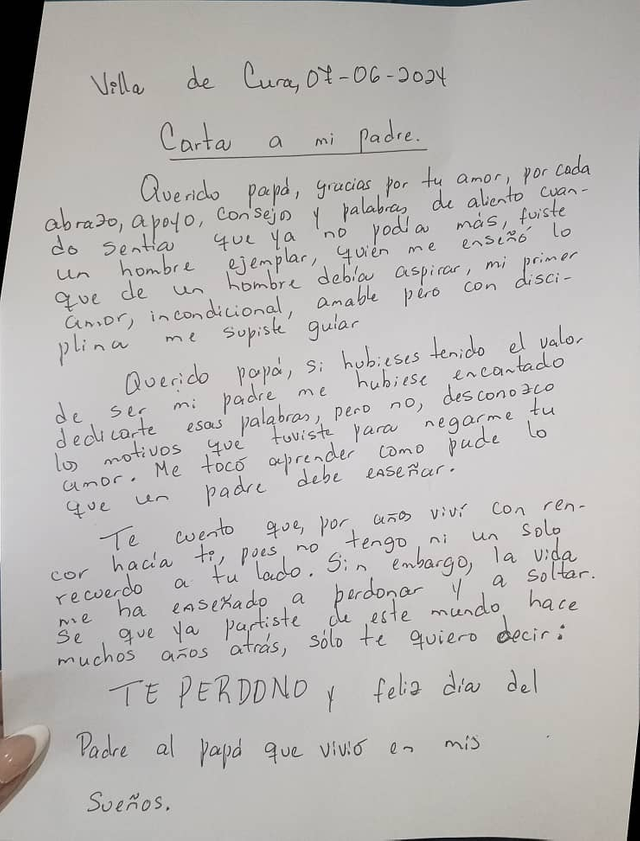 Villa de Cura, 07-06-2024
Carta a mi padre.
Querido papá, gracias por tu amor, por cada
abrazo, apoyo, consejos y palabras de aliento cuan-
do sentía que ya no podía más, fuiste
un hombre ejemplar, quién me enseñó lo
que de un hombre debía aspirar, mi primer
amor, incondicional, amable pero con disci-
plina me supiste guiar
Querido papá, si hubieses tenido el valor
de ser mi padre me hubiese encantado
dedicarte esas palabras, pero no, desconozco
los motivos que tuviste para negarme tu
amor. Me tocó aprender como pude lo
que un padre debe enseñar.
Te cuento que, por años viví con ren-
cor hacía ti, pues no tengo ni un solo
recuerdo a tu lado. Sin embargo, la vida
me ha enseñado a perdonar y a soltar.
Se que ya partiste de este mundo hace
muchos años atrás, sólo te quiero decir:
TE PERDONO y feliz día del
Padre al papá que vivió en mis
Sueños.